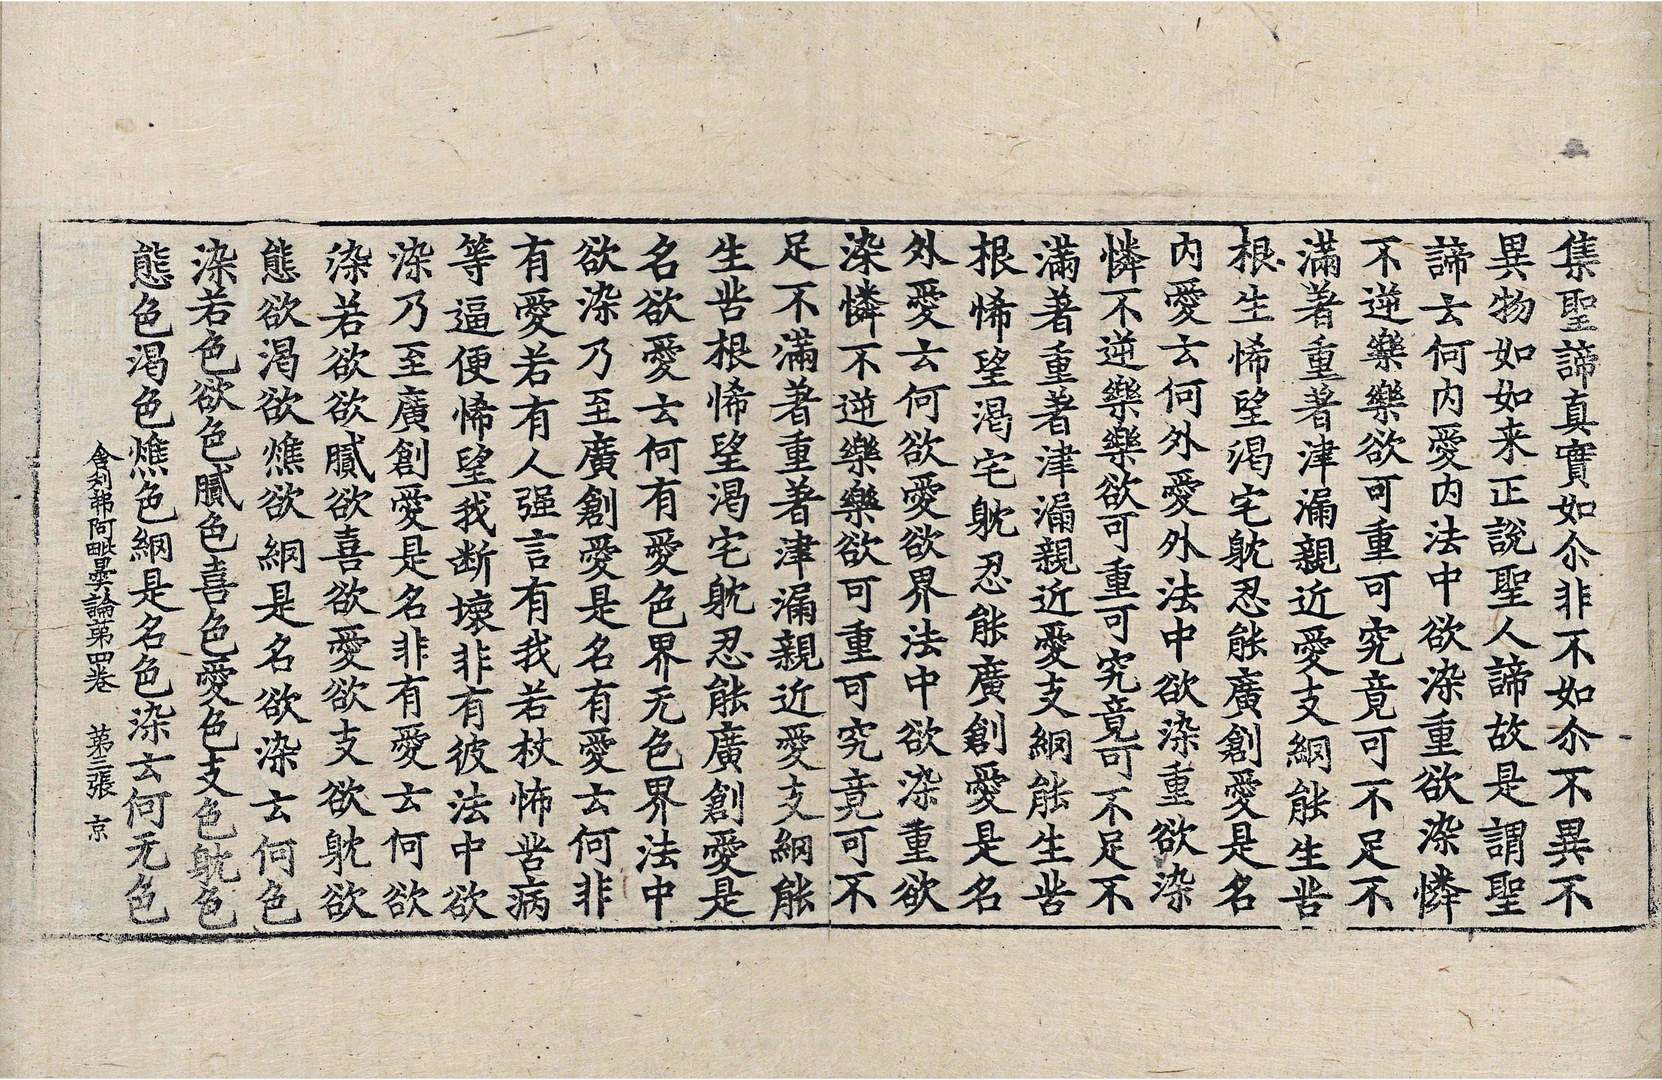 集聖諦真實如尒非不如尒不異不
異物如如来正說聖人諦故是謂聖
諦云何内愛内法中欲染重欲染憐
不逆樂樂欲可重可究竟可不足不
滿著重著津漏親近愛支網能生苦
根生悕望渴宅躭忍能廣創愛是名
内愛云何外愛外法中欲染重欲染
憐不逆樂樂欲可重可究竟可不足不
滿著重著津漏親近愛支網能生苦
根悕望渴宅躭忍能廣創愛是名
外愛云何欲愛欲界法中欲染重欲
染憐不逆樂樂欲可重可究竟可不
足不滿著重著津漏親近愛支網能
生苦根悕望渴宅躭忍能廣創愛是
名欲愛云何有愛色界无色界法中
欲染乃至廣創愛是名有愛云何非
有愛若有人强言有我若杖怖苦病
等逼便悕望我断壞非有彼法中欲
染乃至廣創愛是名非有愛云何欲
染若欲欲膩欲喜欲愛欲支欲躭欲
態欲渴欲燋欲網是名欲染云何色
染若色欲色膩色喜色愛色支色躭色
態色渴色燋色網是名色染云何无色
舍利弗阿毗曇論第四卷 第三張 京